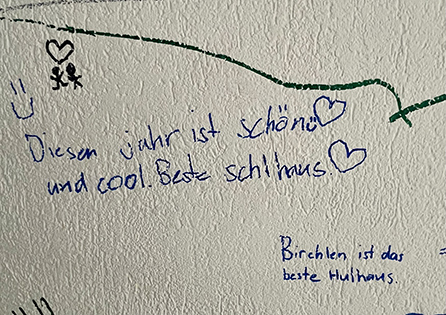 Diesen jahr ist schönö
und cool. Beste schlhaus.
Birchlen ist das
beste Hulhaus.